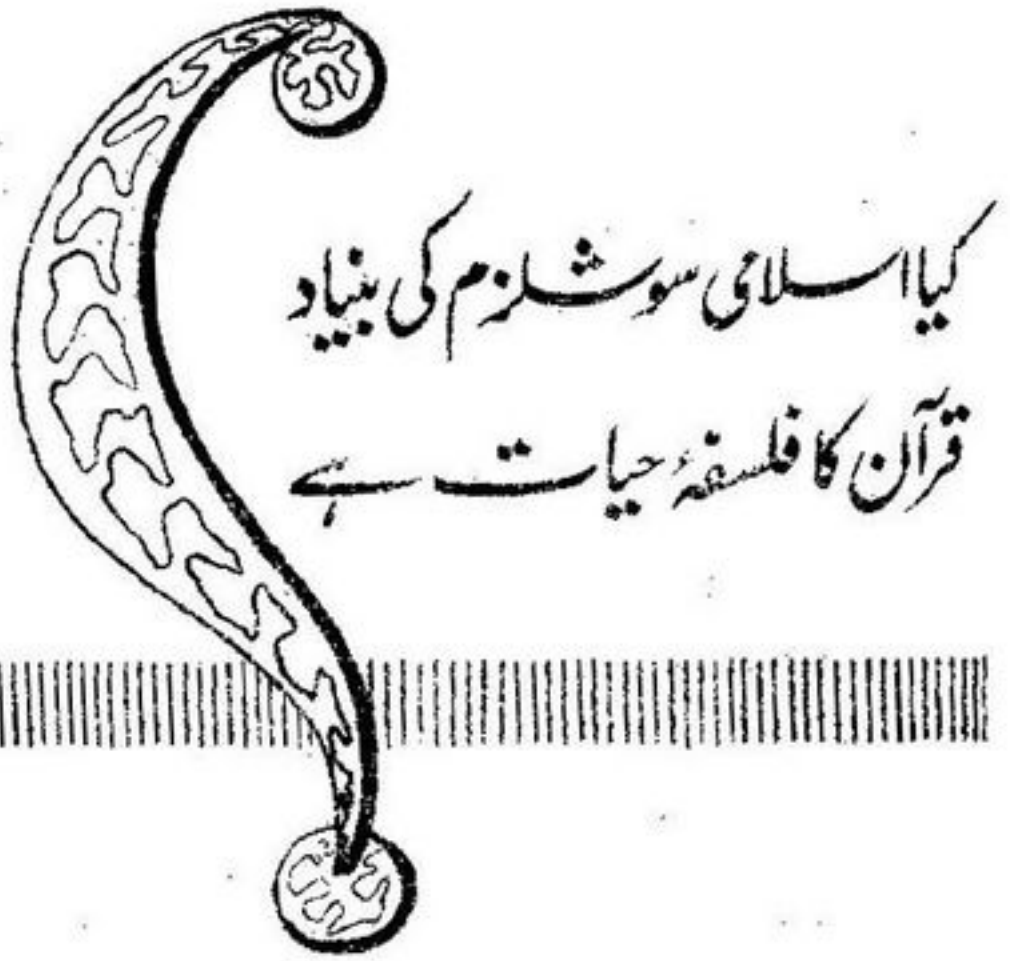 کیا اسلامی سوشلزم کی بنیاد
قرآن کا فلسفۂ حیات ہے
؟